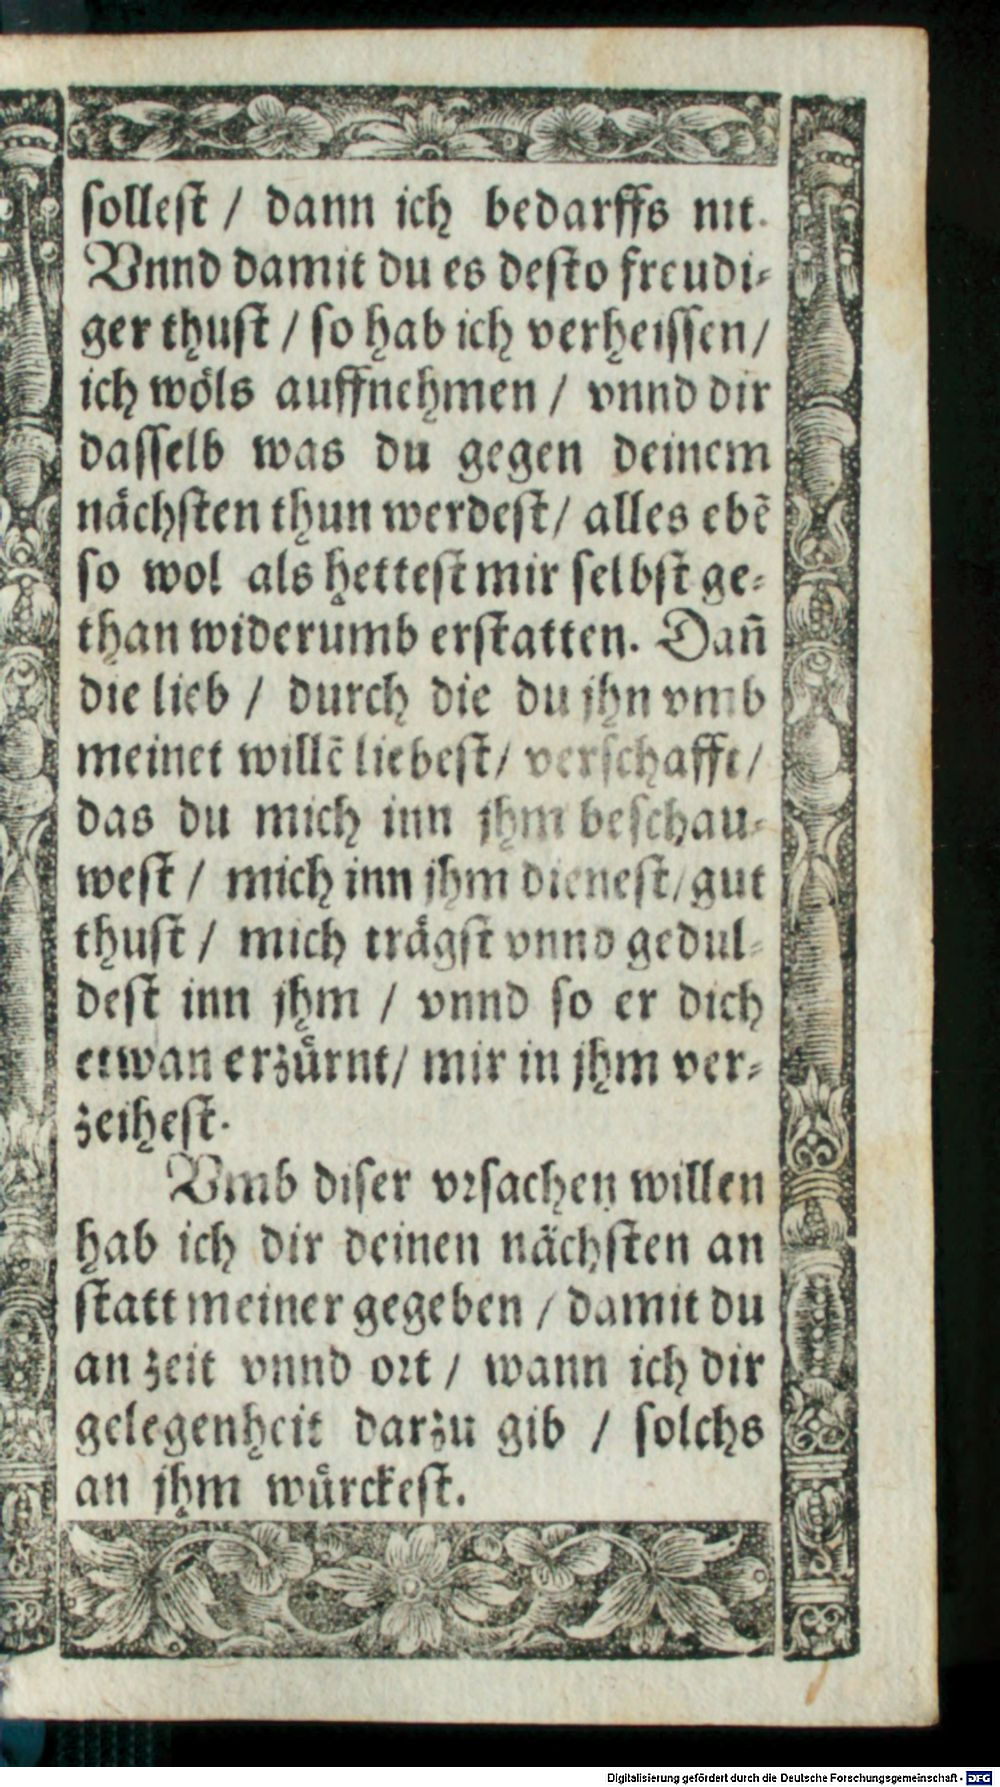 sollest / dann ich bedarffs nit.
Vnnd damit du es desto freudi-
ger thust / so hab ich verheissen /
ich wöls auffnehmen / vnnd dir
dasselb was du gegen deinem
nächsten thun werdest / alles ebẽ
so wol als hettest mir selbst ge-
than widerumb erstatten. Dañ
die lieb / durch die du jhn vmb
meinet willẽ liebest / verschafft /
das du mich inn jhm beschau-
west / mich inn jhm dienest / gut
thust / mich trägst vnnd gedul-
dest inn jhm / vnnd so er dich
etwan erzürnt / mir in jhm ver-
zeihest.
Vmb diser vrsachen willen
hab ich dir deinen nächsten an
statt meiner gegeben / damit du
an zeit vnnd ort / wann ich dir
gelegenheit darzu gib / solchs
an jhm würckest.
Digitalisierung gefördert durch die Deutsche Forschungsgemeinschaft - DFG